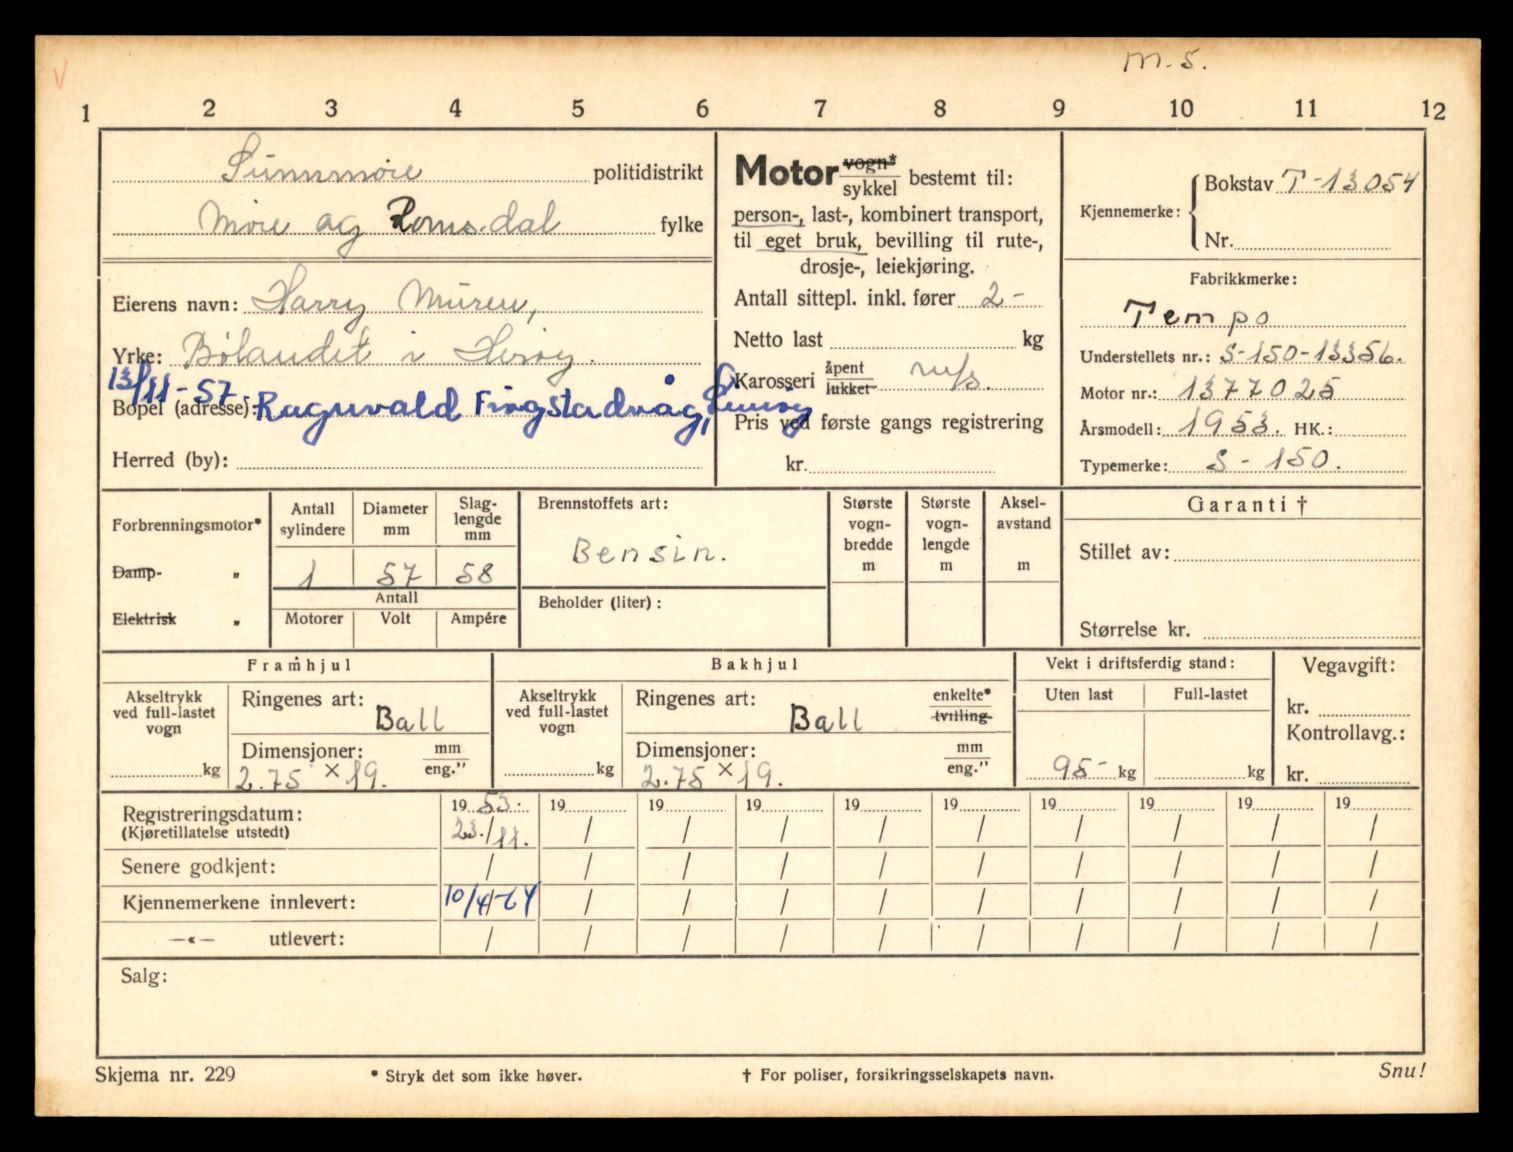 V
m.s.
1 2 3 4 5 6 7 8 9 10 11 12
Sunnmøre politidistrikt
Møre og Romsdal fylke
Eierens navn: Harry Muren,
Yrke: Bølandet i Herøy.
13/11-57.
Bopel (adresse): Ragnvald Fingstadvåg,
Herred (by):
Motor vogn*
sykkel bestemt til:
person-, last-, kombinert transport,
til eget bruk, bevilling til rute-,
drosje-, leiekjøring.
Antall sittepl. inkl. fører 2-
Netto last kg
Karosseri åpent m/s.
lukket
Pris ved første gangs registrering
kr.
Kjennemerke: Bokstav T-13054
Nr.
Fabrikkmerke:
Tempo
Understellets nr.: S-150-13356.
Motor nr.: 1377025
Årsmodell: 1953. HK.:
Typemerke: S-150.
Forbrenningsmotor*
Damp- "
Elektrisk "
Antall sylindere Diameter mm Slag-lengde mm
1 57 58
Antall
Motorer Volt Ampére
Brennstoffets art:
Bensin.
Beholder (liter):
Største vogn-bredde m
Største vogn-lengde m
Aksel-avstand m
Garanti †
Stillet av:
Størrelse kr.
Framhjul
Akseltrykk ved full-lastet vogn
kg
Ringenes art:
Ball
Dimensjoner: mm
eng."
2.75 × 19.
Bakhjul
Akseltrykk ved full-lastet vogn
kg
Ringenes art: enkelte*
Ball tvilling
Dimensjoner: mm
eng."
2.75 × 19.
Vekt i driftsferdig stand:
Uten last Full-lastet
95- kg kg
Vegavgift:
kr.
Kontrollavg.:
kr.
Registreringsdatum: 19 53. 19 19 19 19 19 19 19 19 19
(Kjøretillatelse utstedt) 23./11. / / / / / / / / /
Senere godkjent: / / / / / / / / / /
Kjennemerkene innlevert: 10/4-64 / / / / / / / / /
—«— utlevert: / / / / / / / / / /
Salg:
Skjema nr. 229 * Stryk det som ikke høver. † For poliser, forsikringsselskapets navn. Snu!